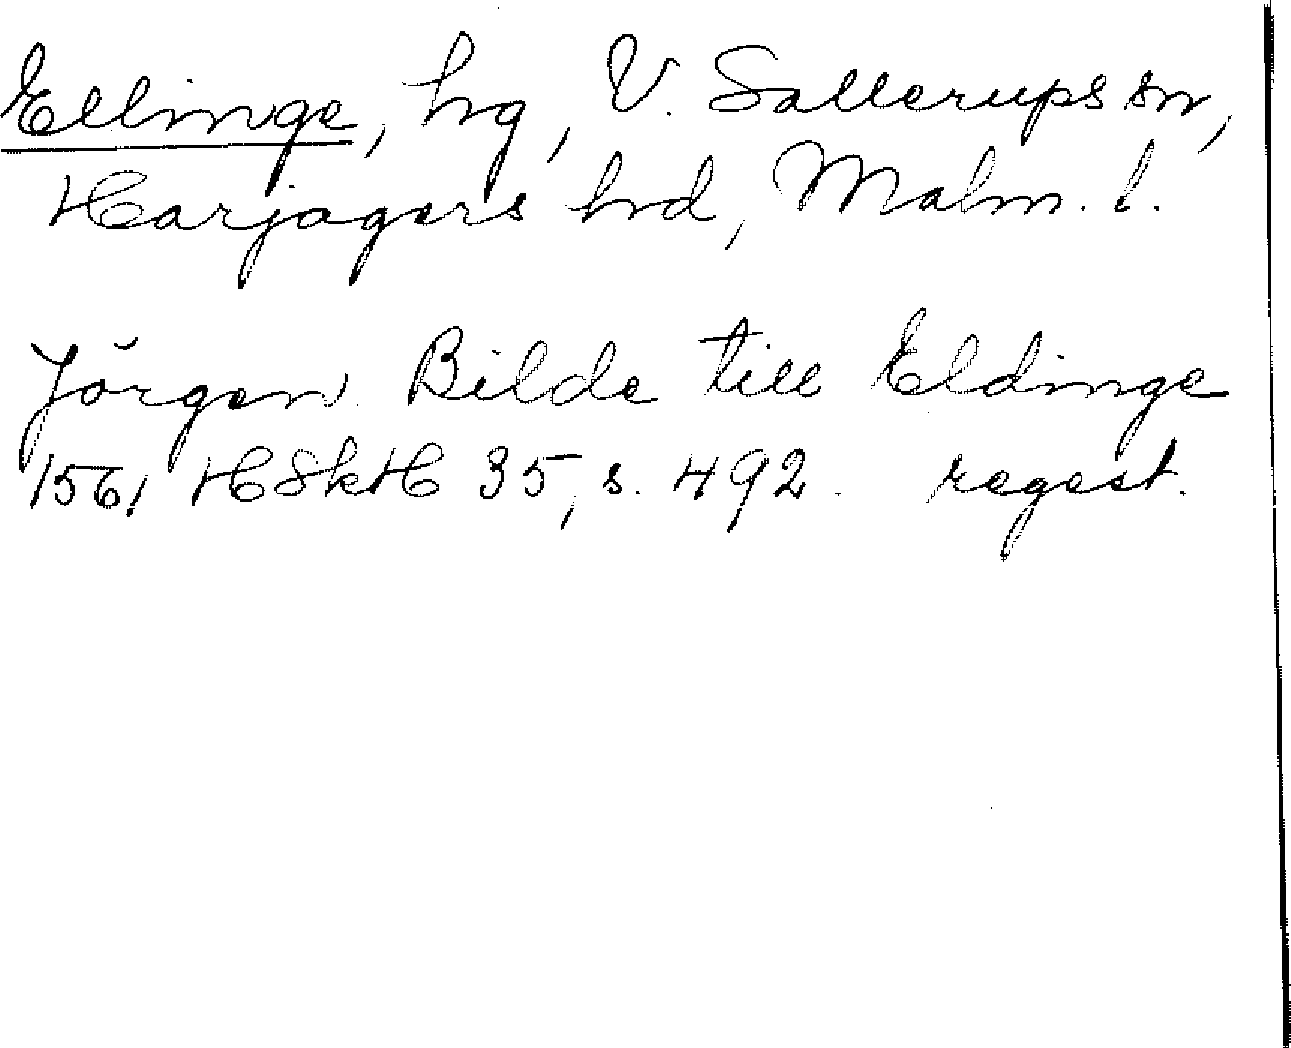 Ellinge, hg, V. Sallerups sn,
Harjagers hd, Malm. l.
Jörgen Bilde till Eldinge
1561 HSkH 35, s. 492. regest.